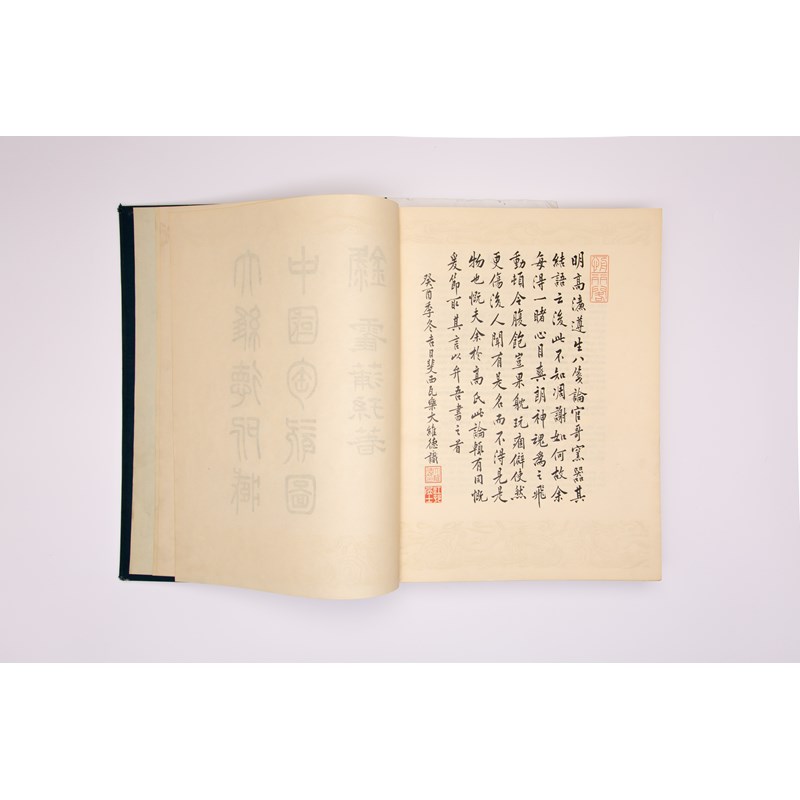 大維德所藏
中國陶瓷圖
錄 霍蒲孫著
明高濂遵生八箋論官哥窯器其
結語云後此不知凋謝如何故余
每得一睹心目爽朗神魂為之飛
動頓令腹飽豈果耽玩痼僻使然
更傷後人聞有是名而不得見是
物也慨夫余於高氏此論頗有同慨
爰節取其言以弁吾書之首
癸酉季冬吉日斐西瓦樂大維德識